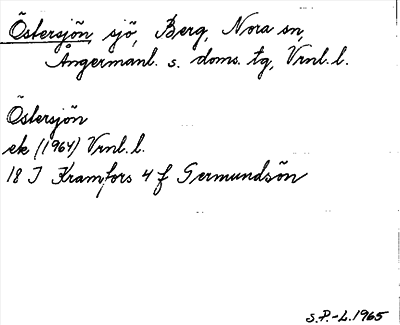 Östersjön sjö, Berg, Nora sn,
Ångermanl. s. doms. tg, Vrnl. l.
Östersjön
ek (1964) Vrnl. l.
18 I Kramfors 4 f Germundsön
S.P.-L. 1965